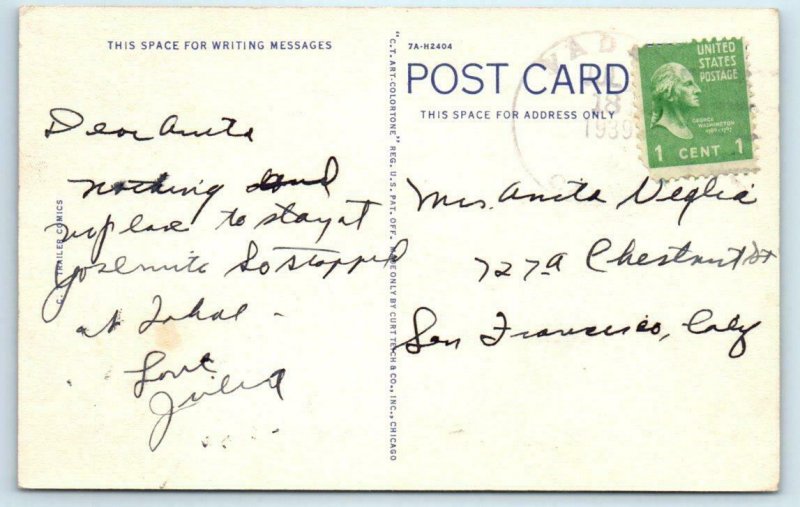 THIS SPACE FOR WRITING MESSAGES
Dear Anita
nothing
no place to stay at
Yosemite so stopped
at Tahoe -
Love
Julia
TRAILER COMICS
"C.T. ART-COLORTONE" REG. U.S. PAT. OFF. MADE ONLY BY CURT TEICH & CO., INC., CHICAGO
7A-H2404
POST CARD
THIS SPACE FOR ADDRESS ONLY
18
1939
UNITED
STATES
POSTAGE
GEORGE
WASHINGTON
1789-1797
1 CENT 1
Mrs. Anita Veglia
727A Chestnut St
San Francisco, Caly